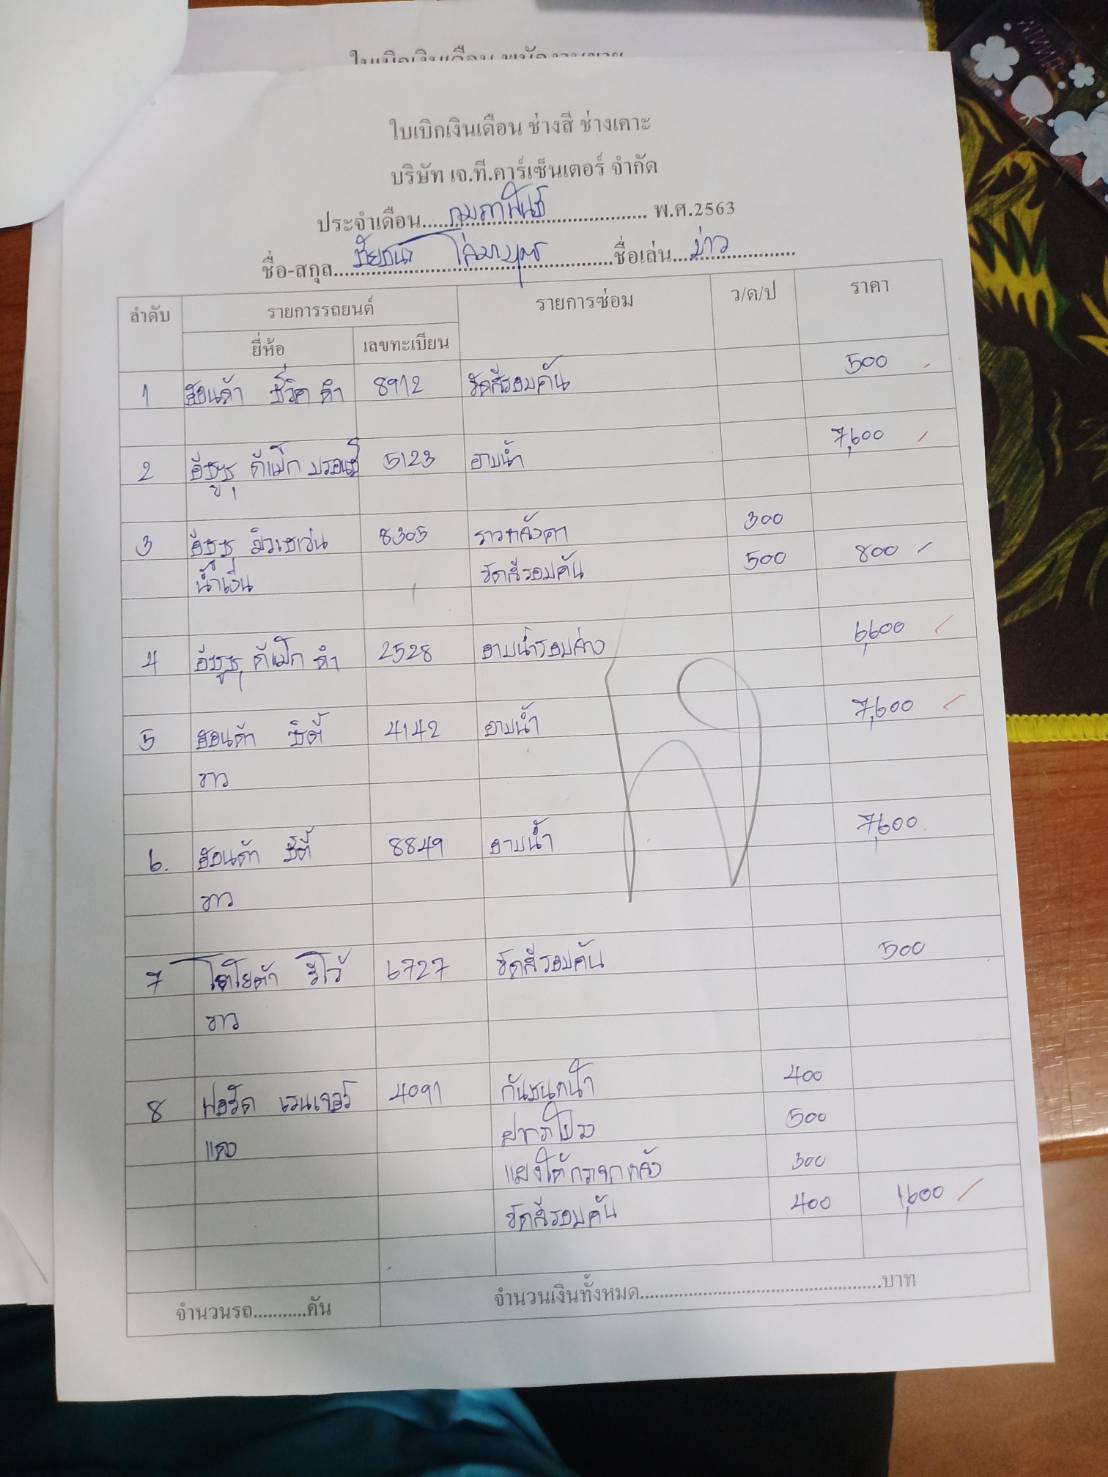 ใบเบิกเงินเดือน ช่างสี ช่างเคาะ
บริษัท เจ.ที.คาร์เซ็นเตอร์ จำกัด
ประจำเดือน.....กุมภาพันธ์..... พ.ศ.2563
ชื่อ-สกุล..........ชื่อเล่น...ม่าว...
ลำดับ รายการรถยนต์ รายการซ่อม ว/ด/ป ราคา
ยี่ห้อ เลขทะเบียน
1 ฮอนด้า ซีวิค ดำ 8912 ขัดสีรอบคัน 500
2 อีซูซุ ดีแม็ก บรอนซ์ 5123 อาบน้ำ 7,600
3 อีซูซุ มิวเซเว่น 8305 ราวหลังคา 300
น้ำเงิน ขัดสีรอบคัน 500 800
4 อีซูซุ ดีแม็ก ดำ 2528 อาบน้ำรอบล่าง 6,600
5 ฮอนด้า ซิตี้ 4142 อาบน้ำ 7,600
ขาว
6. ฮอนด้า ซิตี้ 8849 อาบน้ำ 7,600
ขาว
7 โตโยต้า รีโว้ 6727 ขัดสีรอบคัน 500
ขาว
8 ฟอร์ด เรนเจอร์ 4091 กันชนหน้า 400
แดง ฝากระโปรง 500
แผงใต้กระจกหลัง 300
ขัดสีรอบคัน 400 1,600
จำนวนรถ...........คัน จำนวนเงินทั้งหมด..................................................บาท